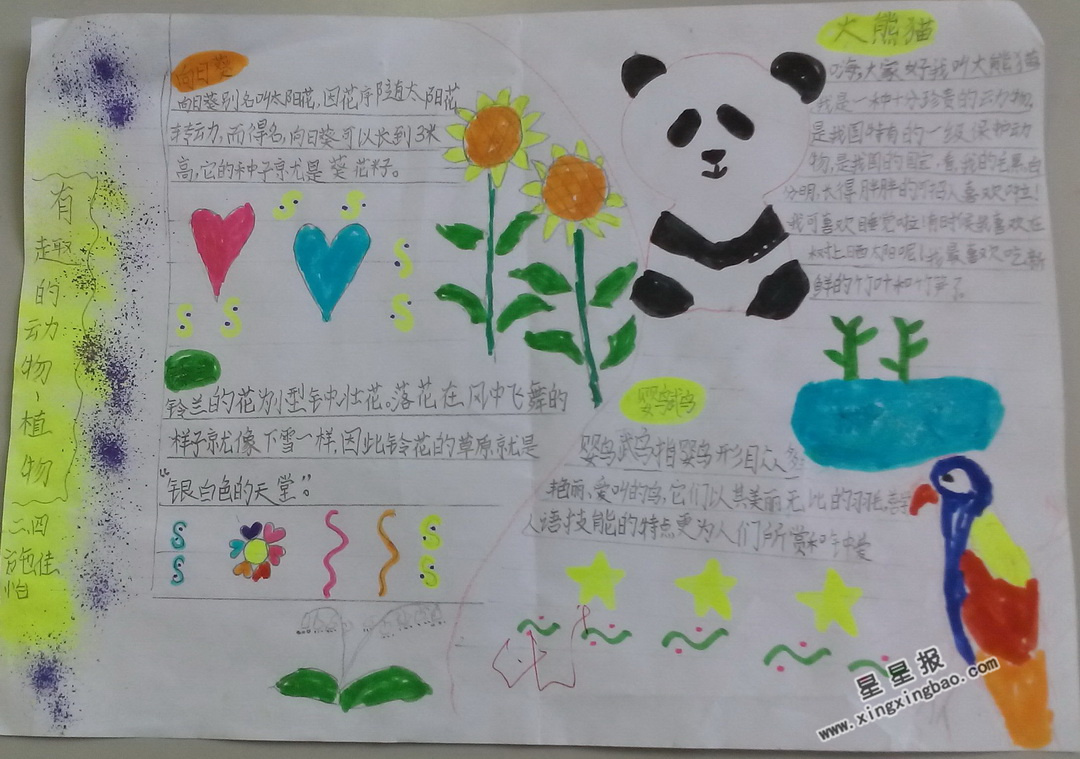 有
趣
的
动
物、
植
物
二、四
施佳
怡
向日葵
向日葵别名叫太阳花,因花序随太阳花
转动,而得名,向日葵可以长到3米
高,它的种子就是葵花籽。
铃兰的花为小型钟壮花。落花在风中飞舞的
样子就像下雪一样,因此铃花的草原就是
“银白色的天堂”。
大熊猫
嗨,大家好我叫大熊猫
我是一种十分珍贵的动物,
是我国特有的一级保护动
物,是我国的国宝,我的毛黑白
分明,长得胖胖的可招人喜欢啦!
我可喜欢睡觉啦!有时候我喜欢在
树上晒太阳呢!我最喜欢吃新
鲜的竹叶和竹笋了。
鹦鹉
鹦鸟武鸟指鹦鸟形目众多
艳丽、爱叫的鸟,它们以其美丽无比的羽毛,善学
人语技能的特点更为人们所赏和钟爱
星星报
www.xingxingbao.com